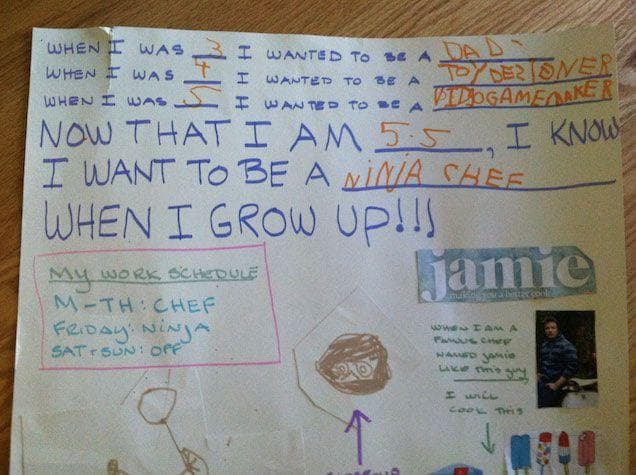 WHEN I WAS 3 I WANTED TO BE A DAD
WHEN I WAS 4 I WANTED TO BE A TOYDEZIONER
WHEN I WAS 5 I WANTED TO BE A VIDOGAMEMAKER
NOW THAT I AM 5.5, I KNOW
I WANT TO BE A NiNJA CHEF
WHEN I GROW UP!!!
MY WORK SCHEDULE
M-TH: CHEF
FRIDAY: NINJA
SAT + SUN: OFF
jamie
making you a better cook
WHEN I AM A
FAMOUS CHEF
NAMED JAMIE
LIKE THIS guy
I WILL
COOK THIS